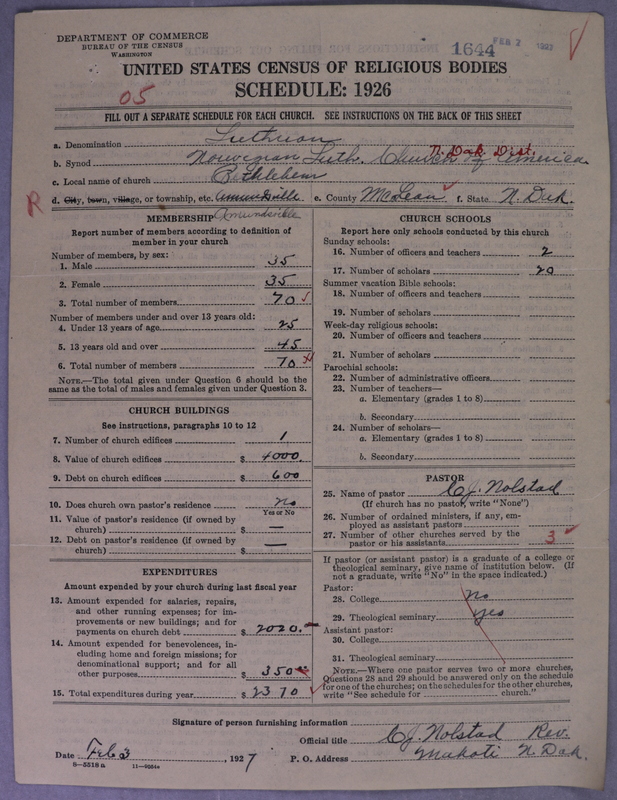 DEPARTMENT OF COMMERCE
BUREAU OF THE CENSUS
WASHINGTON
1644 FEB 7 1927
UNITED STATES CENSUS OF RELIGIOUS BODIES
SCHEDULE: 1926
05
FILL OUT A SEPARATE SCHEDULE FOR EACH CHURCH. SEE INSTRUCTIONS ON THE BACK OF THIS SHEET
a. Denomination Luthuran
N. Dak. Dist.
b. Synod Norwegian Luth. Church of America
c. Local name of church Bethlehem
R d. City, town, village, or township, etc. Amundsville e. County McLean f. State N. Dak.
Amundsville
MEMBERSHIP
Report number of members according to definition of
member in your church
Number of members, by sex:
1. Male 35
2. Female 35
3. Total number of members 70
Number of members under and over 13 years old:
4. Under 13 years of age 25
5. 13 years old and over 45
6. Total number of members 70
NOTE.—The total given under Question 6 should be the
same as the total of males and females given under Question 3.
CHURCH BUILDINGS
See instructions, paragraphs 10 to 12
7. Number of church edifices 1
8. Value of church edifices $ 4000.
9. Debt on church edifices $ 600
10. Does church own pastor's residence No
Yes or No
11. Value of pastor's residence (if owned by
church) $ —
12. Debt on pastor's residence (if owned by
church) $ —
EXPENDITURES
Amount expended by your church during last fiscal year
13. Amount expended for salaries, repairs,
and other running expenses; for im-
provements or new buildings; and for
payments on church debt $ 2020.
14. Amount expended for benevolences, in-
cluding home and foreign missions; for
denominational support; and for all
other purposes $ 350
15. Total expenditures during year $ 2370
CHURCH SCHOOLS
Report here only schools conducted by this church
Sunday schools:
16. Number of officers and teachers 2
17. Number of scholars 20
Summer vacation Bible schools:
18. Number of officers and teachers
19. Number of scholars
Week-day religious schools:
20. Number of officers and teachers
21. Number of scholars
Parochial schools:
22. Number of administrative officers
23. Number of teachers—
a. Elementary (grades 1 to 8)
b. Secondary
24. Number of scholars—
a. Elementary (grades 1 to 8)
b. Secondary
PASTOR
25. Name of pastor C.J. Nolstad
(If church has no pastor, write "None")
26. Number of ordained ministers, if any, em-
ployed as assistant pastors
27. Number of other churches served by the
pastor or his assistants 3
If pastor (or assistant pastor) is a graduate of a college or
theological seminary, give name of institution below. (If
not a graduate, write "No" in the space indicated.)
Pastor:
28. College No
29. Theological seminary yes
Assistant pastor:
30. College
31. Theological seminary
NOTE.—Where one pastor serves two or more churches,
Questions 28 and 29 should be answered only on the schedule
for one of the churches; on the schedules for the other churches,
write "See schedule for church."
Signature of person furnishing information
Official title C.J. Nolstad Rev.
Date Feb 3, 1927 P. O. Address Makoti N. Dak.
8—5518a 11—9664a